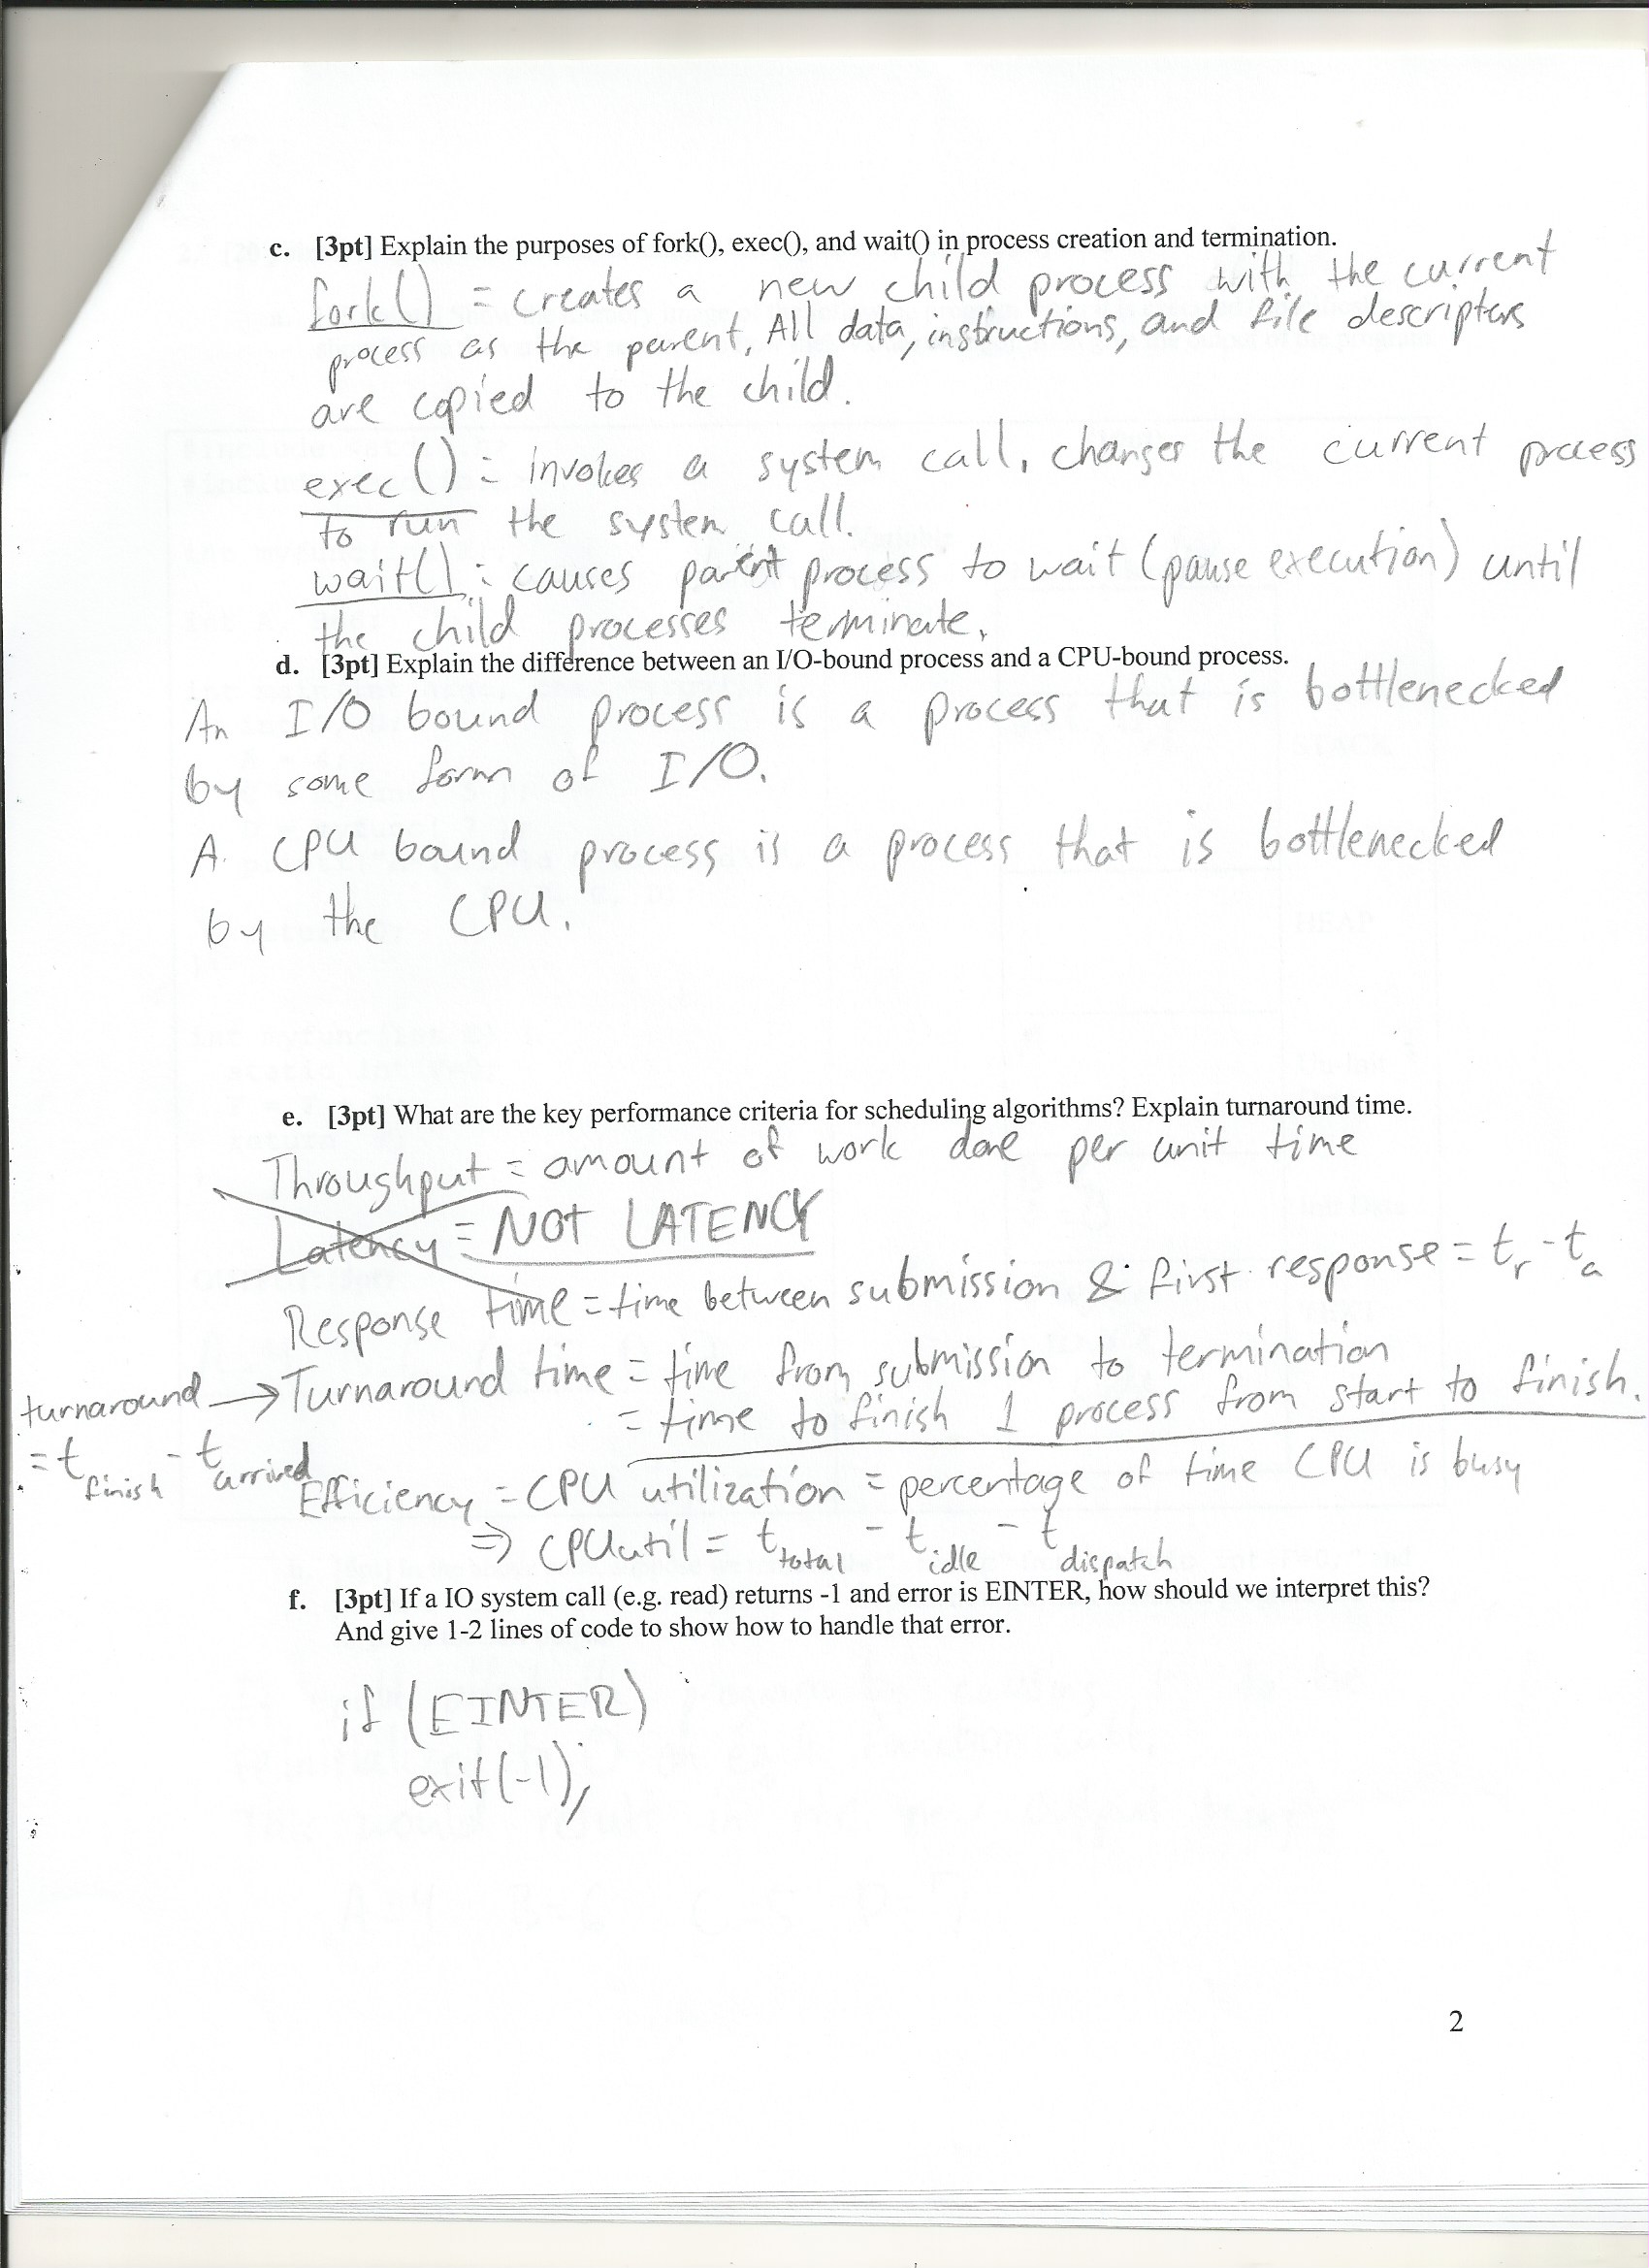 c. [3pt] Explain the purposes of fork(), exec(), and wait() in process creation and termination.
fork() = creates a new child process with the current
process as the parent, All data, instructions, and file descriptors
are copied to the child.
exec() = invokes a system call, changes the current process
to run the system call.
wait() : causes parent process to wait (pause execution) until
the child processes terminate.
d. [3pt] Explain the difference between an I/O-bound process and a CPU-bound process.
An I/O bound process is a process that is bottlenecked
by some form of I/O.
A CPU bound process is a process that is bottlenecked
by the CPU.
e. [3pt] What are the key performance criteria for scheduling algorithms? Explain turnaround time.
Throughput = amount of work done per unit time
Latency = NOT LATENCY
Response time = time between submission & first response = t_r - t_a
turnaround → Turnaround time = time from submission to termination
= time to finish 1 process from start to finish.
= t_finish - t_arrived
Efficiency = CPU utilization = percentage of time CPU is busy
⇒ CPUutil = t_total - t_idle - t_dispatch
f. [3pt] If a IO system call (e.g. read) returns -1 and error is EINTER, how should we interpret this?
And give 1-2 lines of code to show how to handle that error.
if (EINTER)
exit(-1);
2